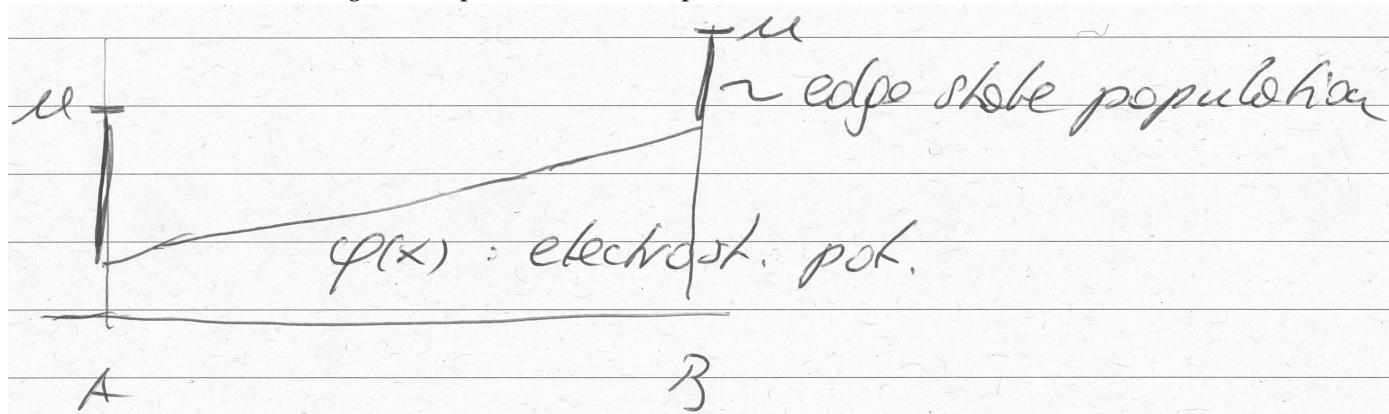 μ
~ edge state population
μ
φ(x) : electrost. pot.
A B